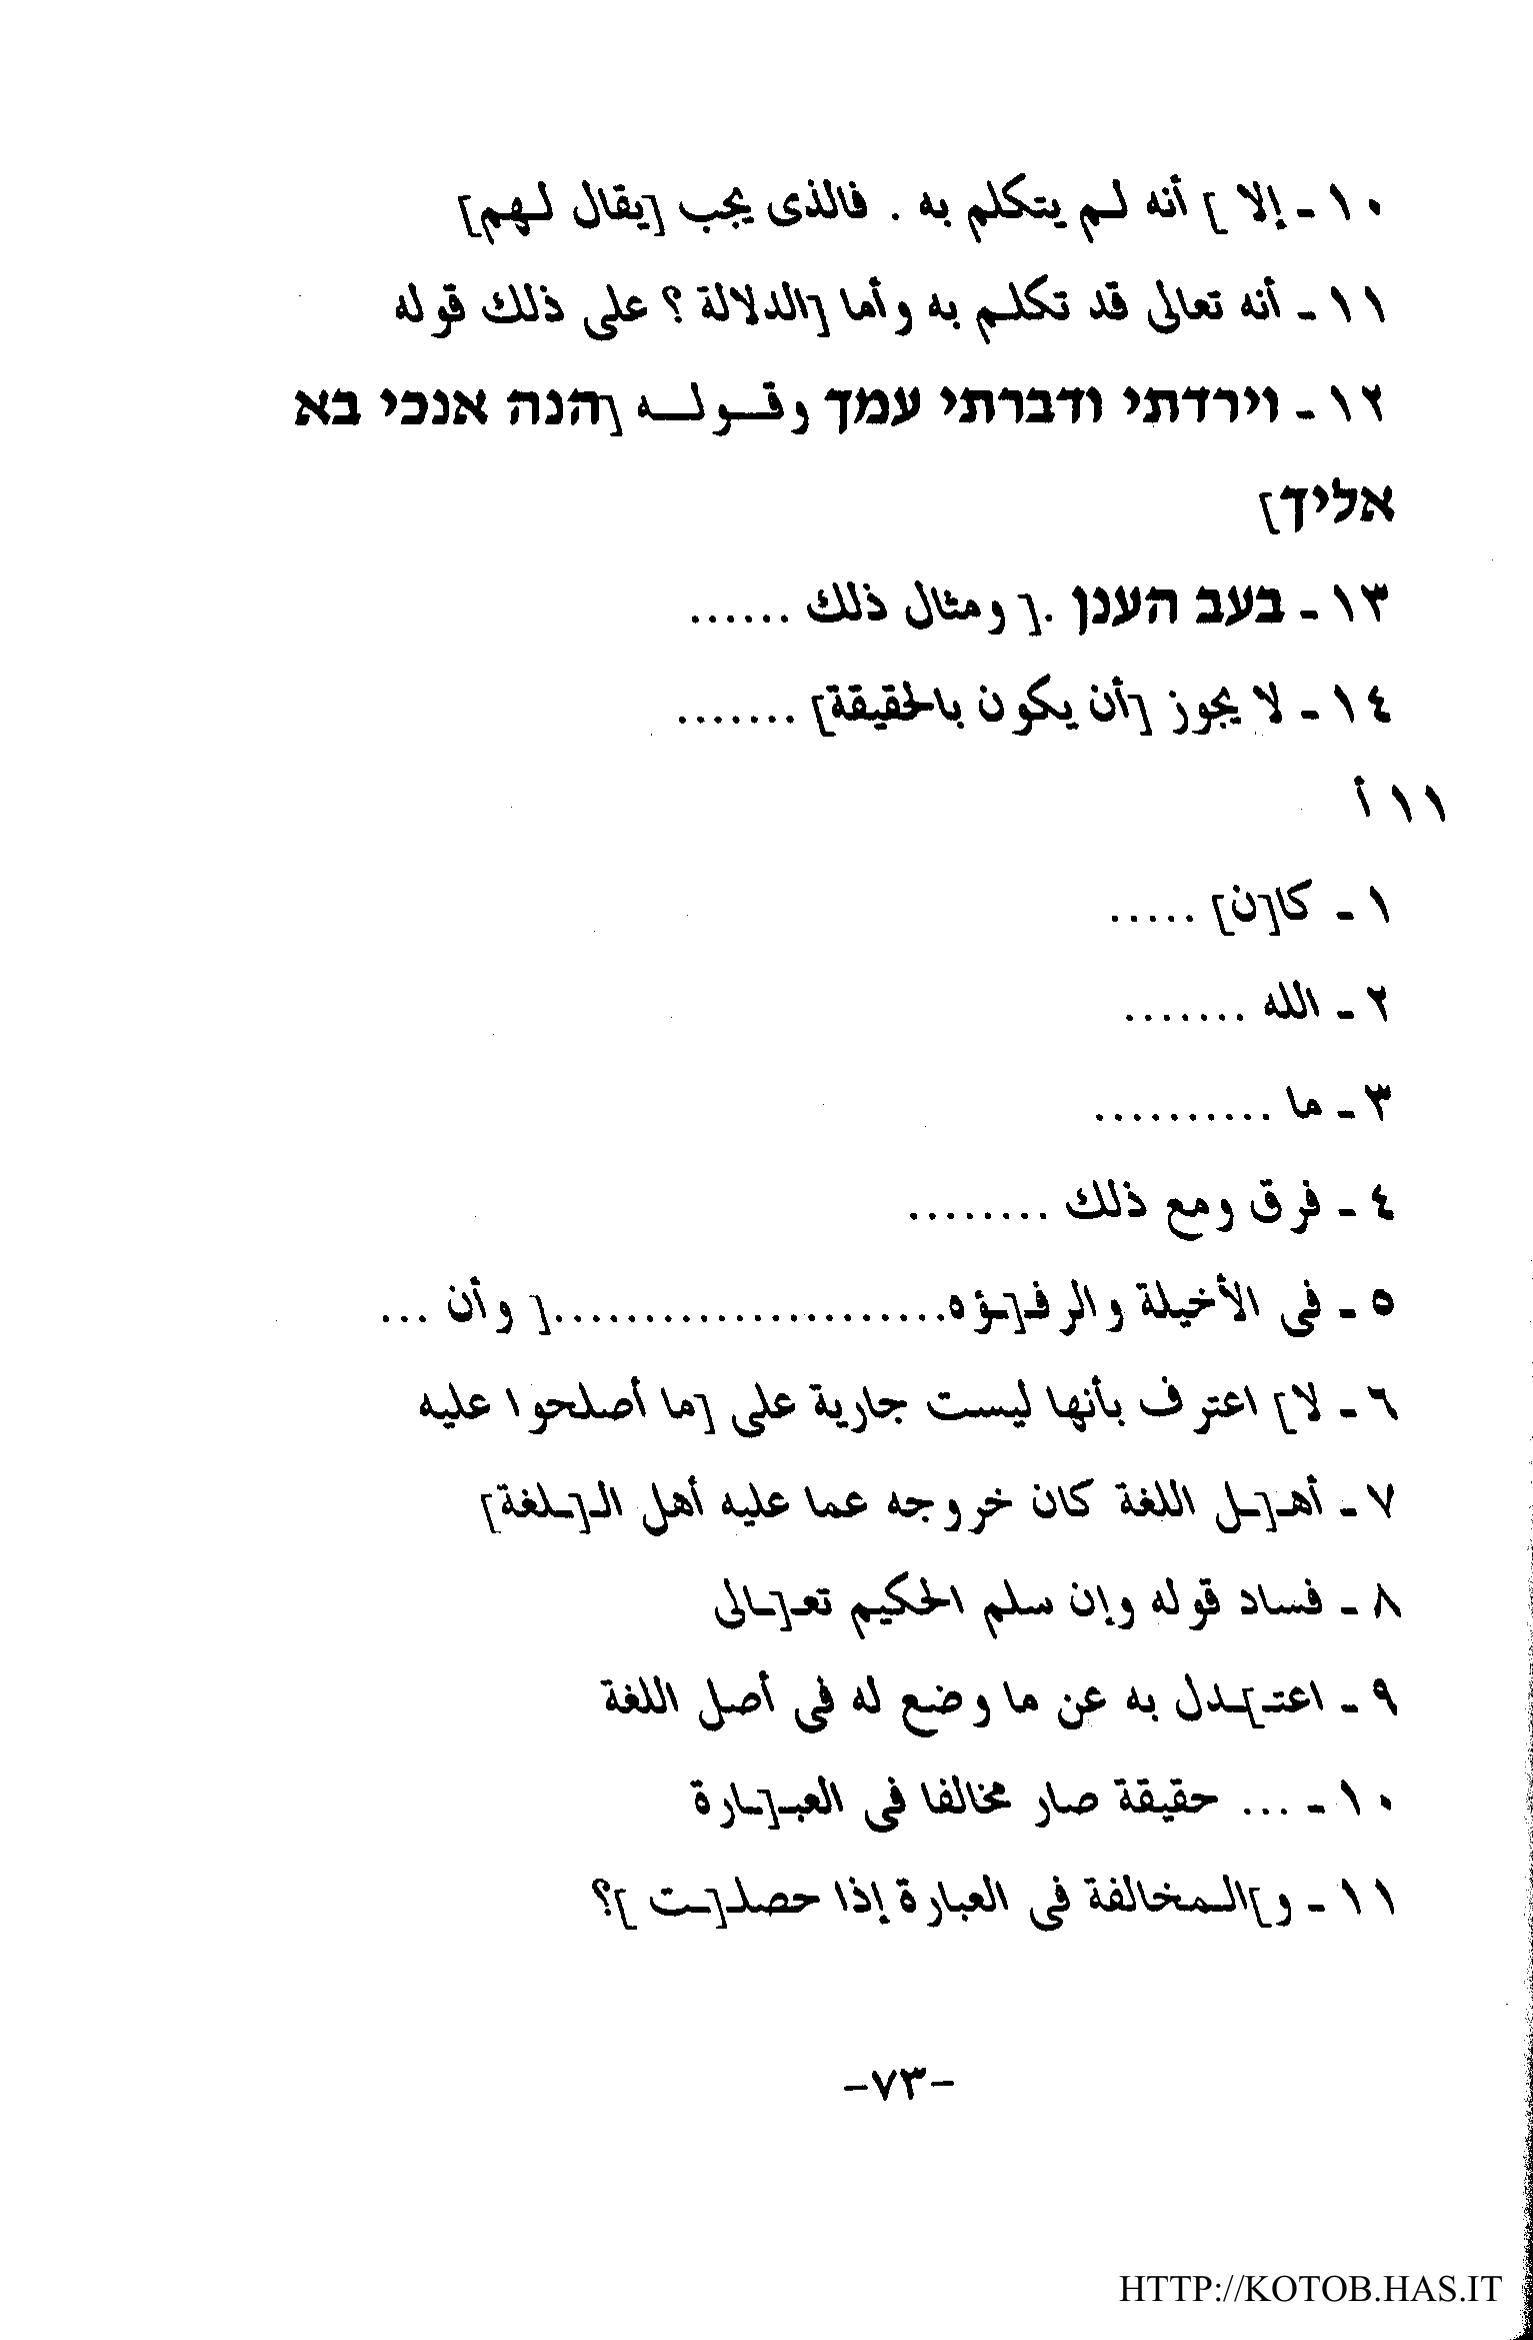 ١٠ - إلا ] أنه لم يتكلم به . فالذى يجب [يقال لهم]
١١ - أنه تعالى قد تكلم به وأما [الدلالة ؟ على ذلك قوله
١٢ - וירדתי ודברתי עמך وقوله [הנה אנכי בא
אליך]
١٣ - בעב הענן .[ ومثال ذلك ......
١٤ - لا يجوز [أن يكون بالحقيقة] .......
١١ أ
١ - كا[ن] .....
٢ - الله .......
٣ - ما ..........
٤ - فرق ومع ذلك ........
٥ - فى الأخيلة والرفـ[ـؤه......................[ وأن ...
٦ - لا] اعترف بأنها ليست جارية على [ما أصلحوا عليه
٧ - أهـ[ـل اللغة كان خروجه عما عليه أهل الـ[ـلغة]
٨ - فساد قوله وإن سلم الحكيم تعـ[ـالى
٩ - اعتـ]ـدل به عن ما وضع له فى أصل اللغة
١٠ - ... حقيقة صار مخالفا فى العبـ[ـارة
١١ - و]المخالفة فى العبارة إذا حصلـ[ـت ]؟
-٧٣-
HTTP://KOTOB.HAS.IT